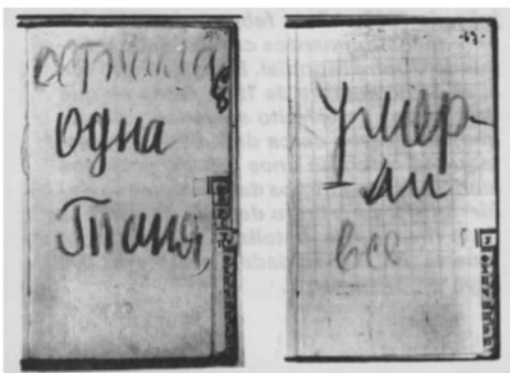 Осталась
одна
Таня,
Умер-
ли
все